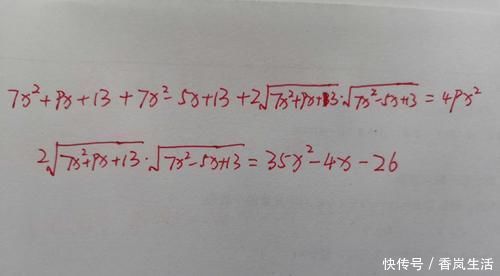 7x²+9x+13+7x²-5x+13+2√(7x²+9x+13)·√(7x²-5x+13)=49x²
2√(7x²+9x+13)·√(7x²-5x+13)=35x²-4x-26
快传号／香岚生活